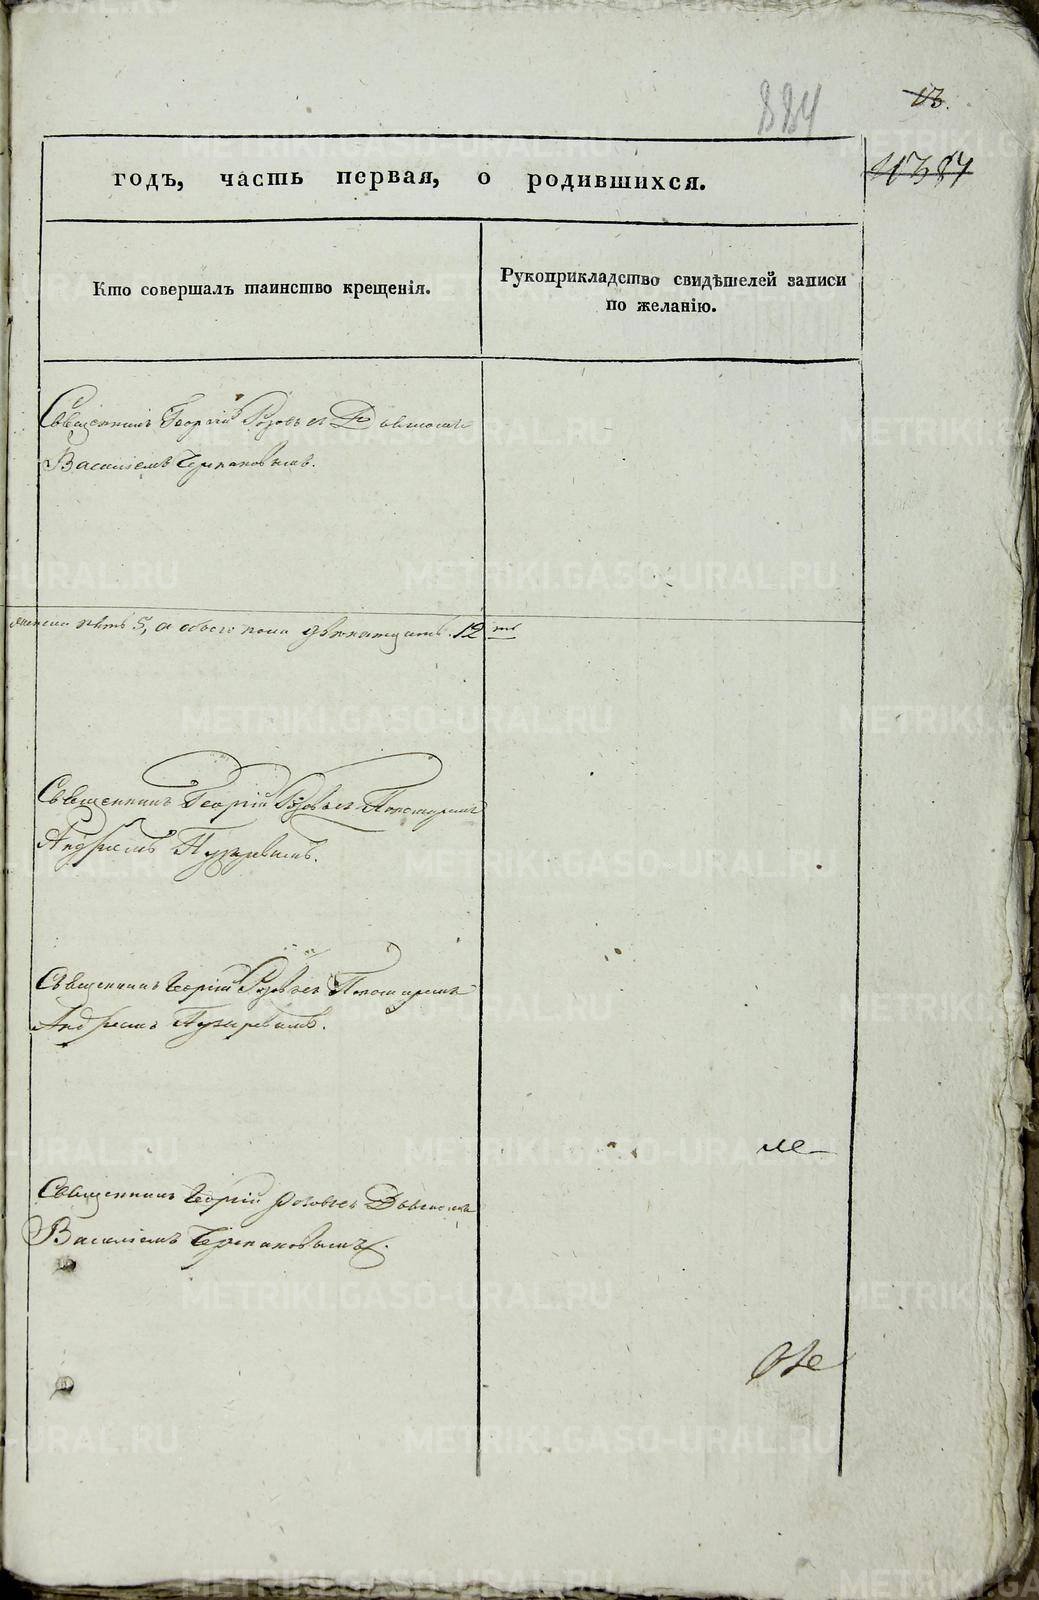 884
13.
годъ, часть первая, о родившихся.
Кто совершалъ таинство крещенія.
Рукоприкладство свидѣтелей записи
по желанію.
Священникъ Георгій Розовъ съ Дьякономъ
Василіемъ Черпаковымъ.
женска пять 5, а обоего пола двенатцать. 12ть
Священникъ Георгій Розовъ съ Пономаремъ
Андреемъ Пузыревымъ.
Священникъ Георгій Розовъ съ Пономаремъ
Андреемъ Пузыревымъ.
Священникъ Георгій Розовъ съ Дьякономъ
Василіемъ Черпаковымъ.
METRIKI.GASO-URAL.RU